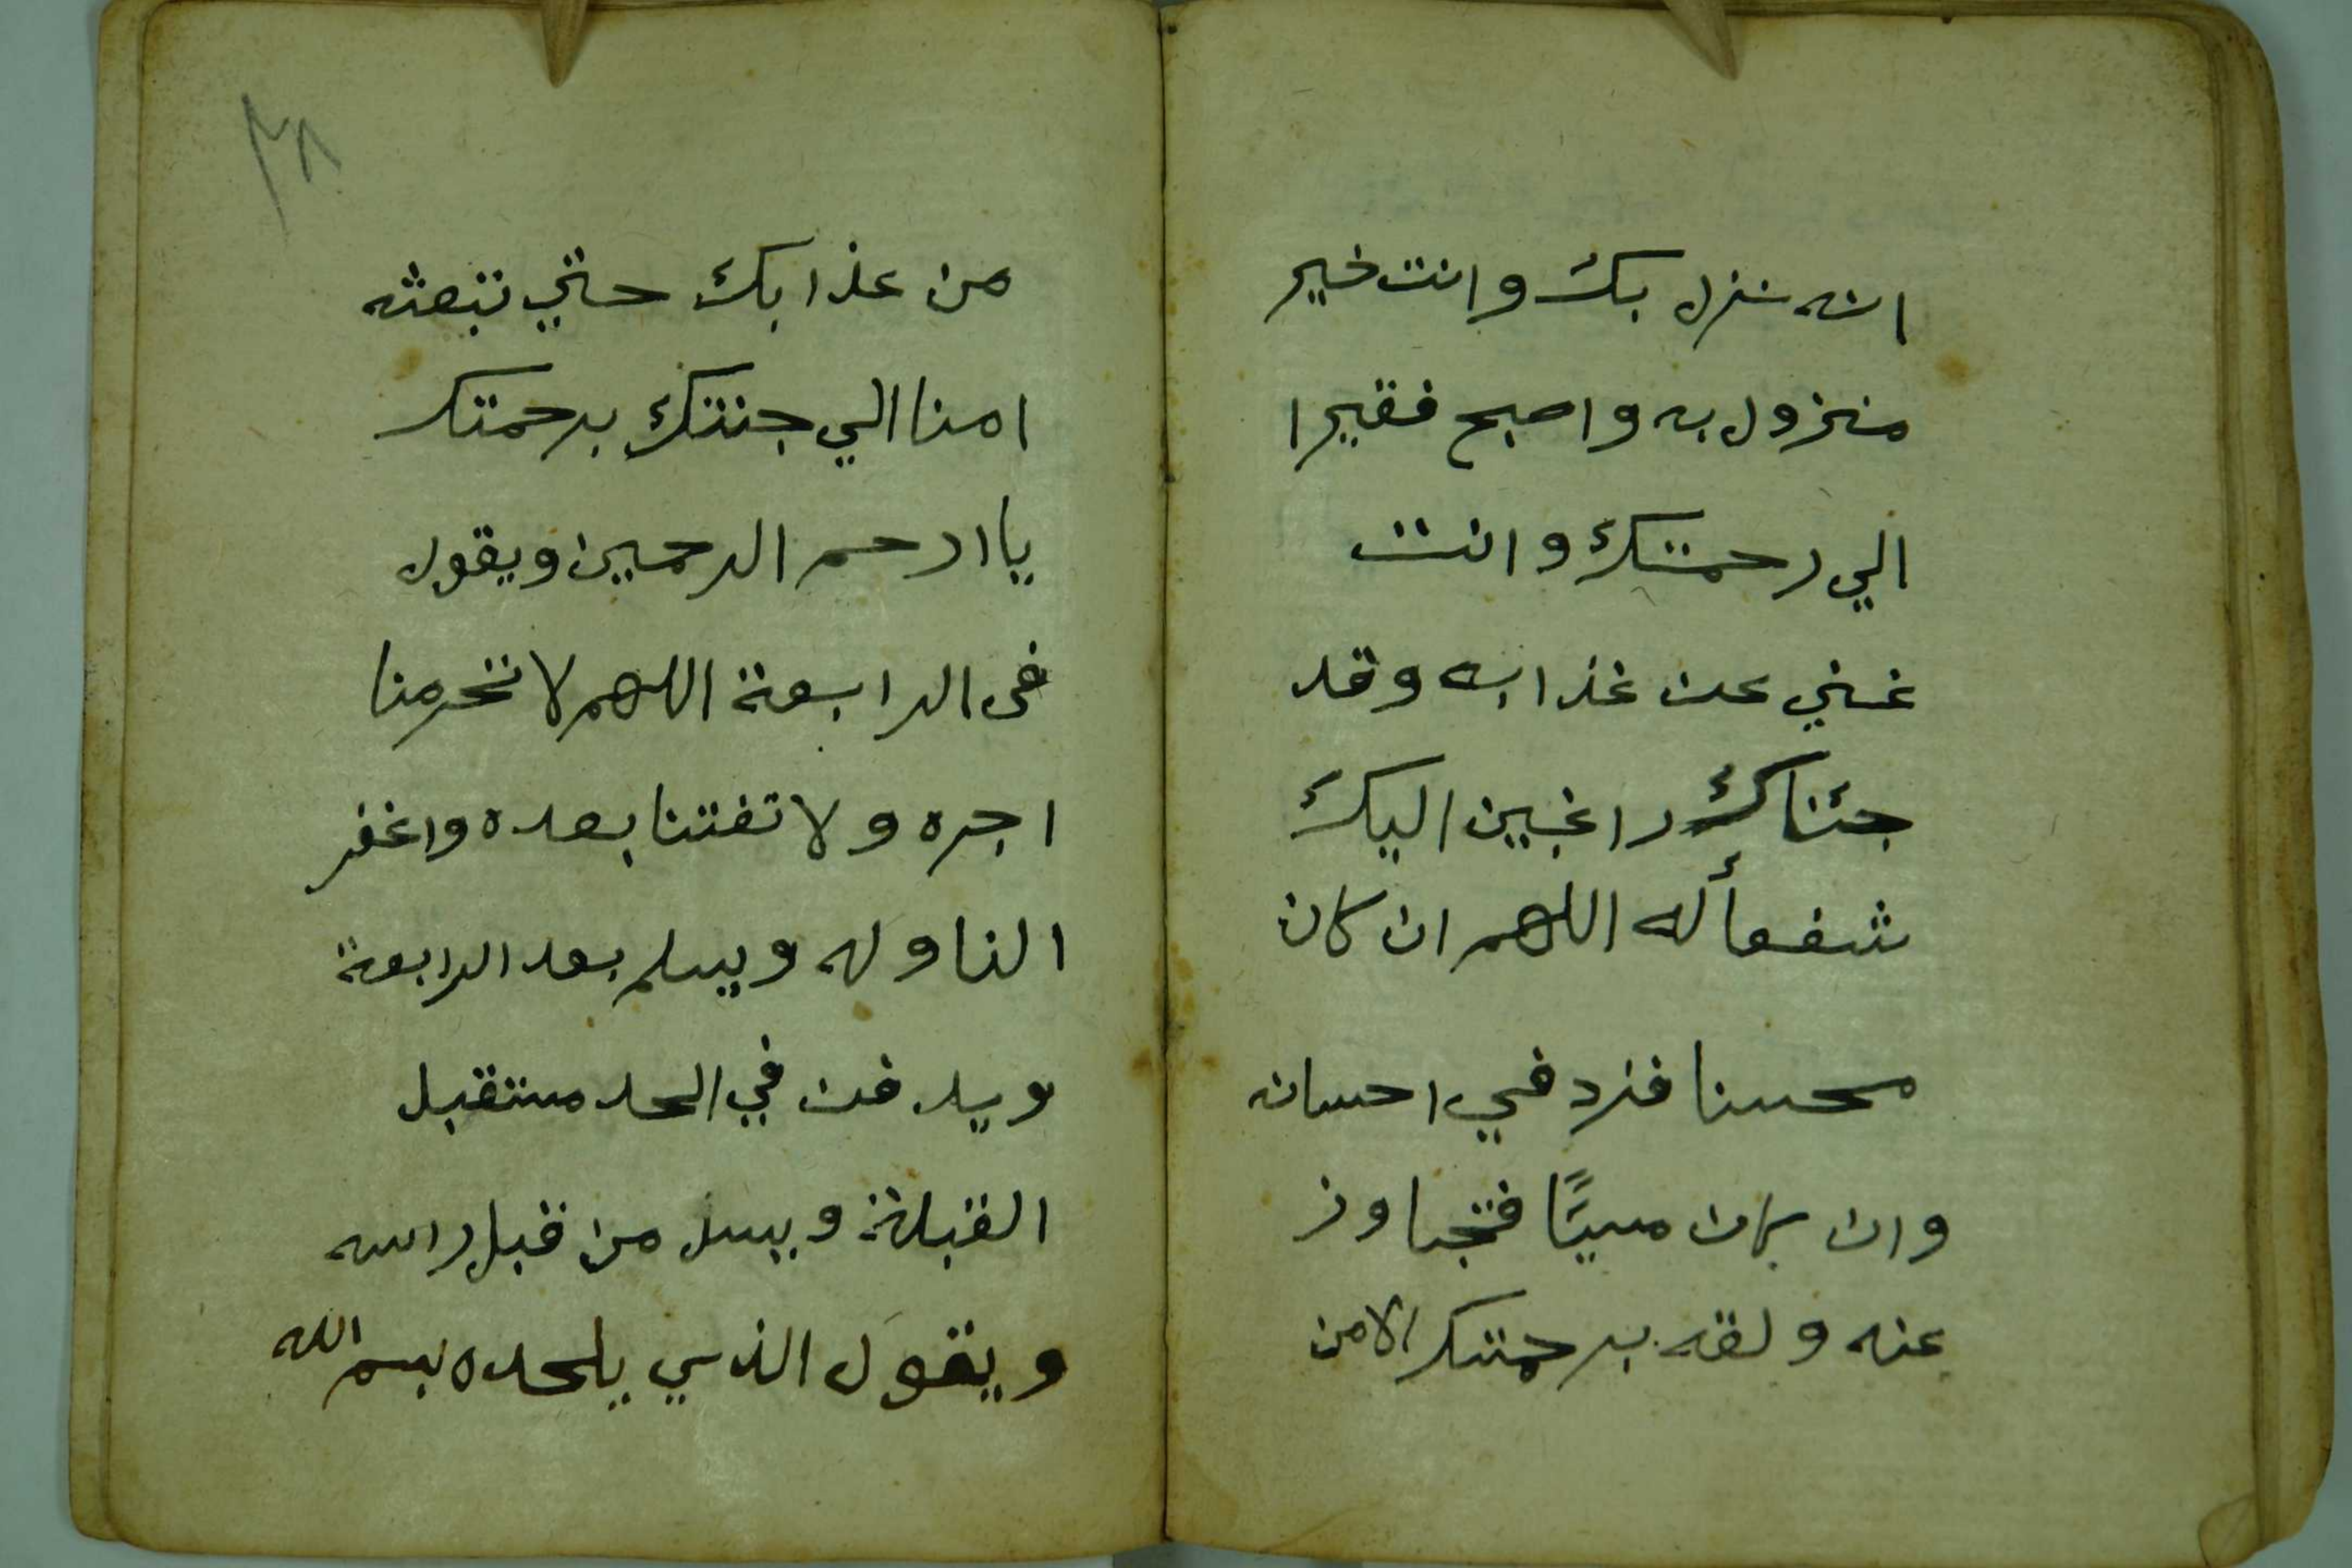 انه نزل بك وانت خير
منزول به واصبح فقيرا
الي رحمتك وانت
غني عن غذابه وقد
جئناك راغبين اليك
شفعأ له اللهم ان كان
محسنا فزد في احسانه
وان كان مسيًا فتجاوز
عنه ولقه برحمتك الامن
٣٨
من عذابك حتي تبعثه
امنا الي جنتك برحمتك
يا ارحم الرحمين ويقول
فى الرابعة اللهم لا تحرمنا
اجره ولا تفتنا بعده واغفر
لنا وله ويسلم بعد الرابعة
ويدفن في الحد مستقبل
القبلة ويسل من قبل راسه
ويقول الذي يلحده بسم الله